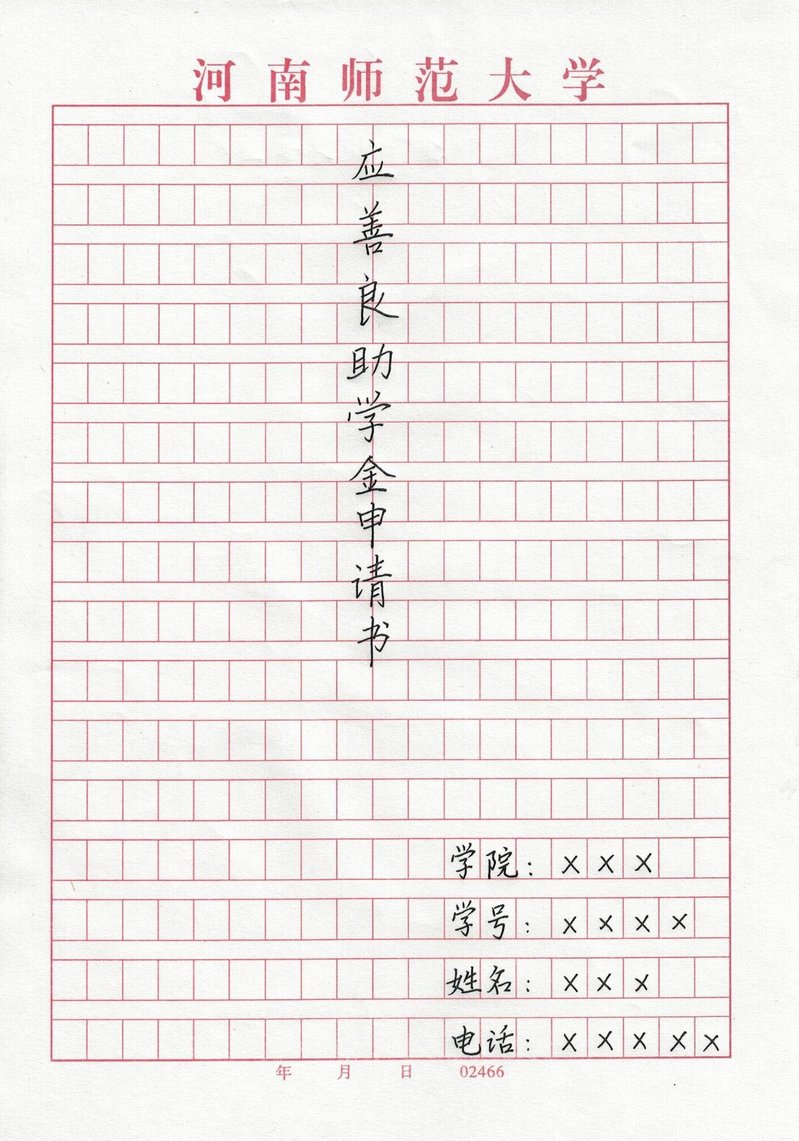 河南师范大学
应善良助学金申请书
学院：×××
学号：××××
姓名：×××
电话：×××××
年 月 日 02466